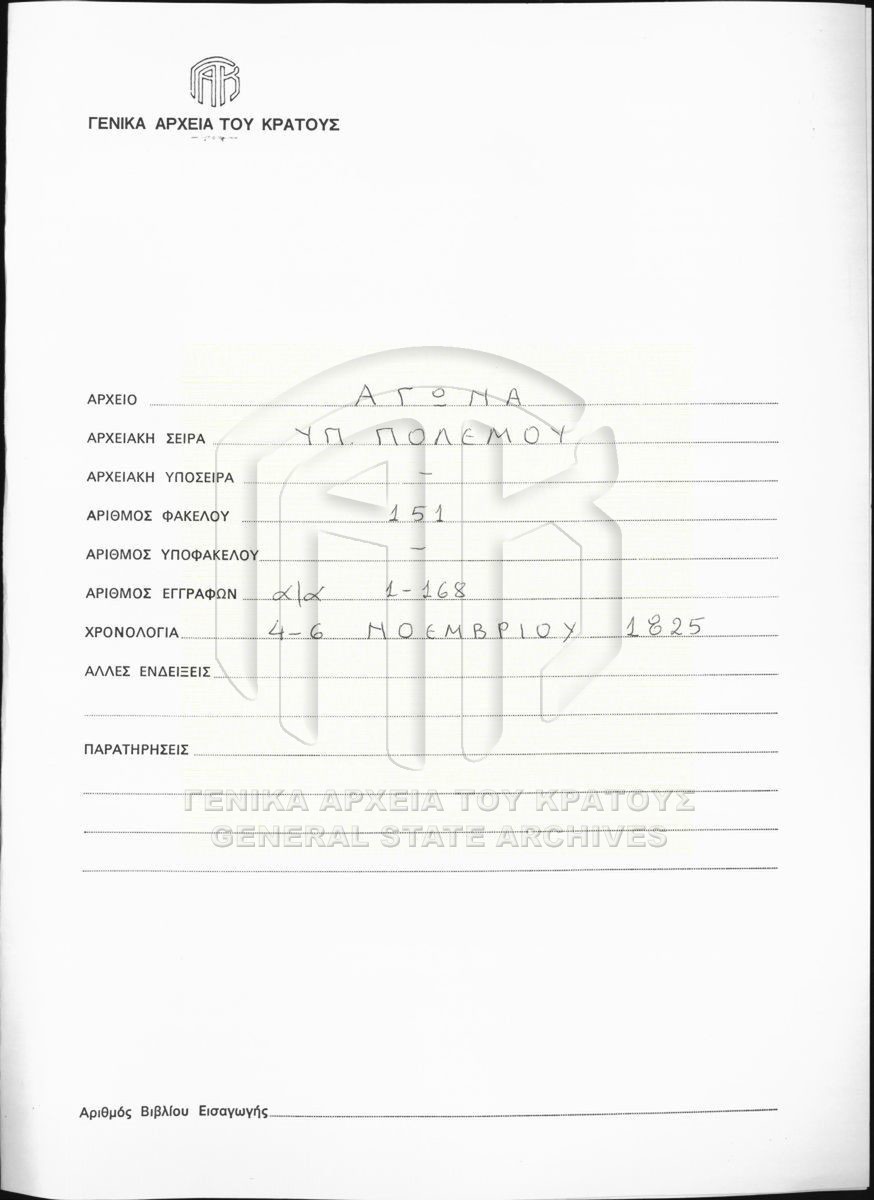 ΓΑΚ
ΓΕΝΙΚΑ ΑΡΧΕΙΑ ΤΟΥ ΚΡΑΤΟΥΣ
ΑΡΧΕΙΟ ΑΓΩΝΑ
ΑΡΧΕΙΑΚΗ ΣΕΙΡΑ ΥΠ. ΠΟΛΕΜΟΥ
ΑΡΧΕΙΑΚΗ ΥΠΟΣΕΙΡΑ -
ΑΡΙΘΜΟΣ ΦΑΚΕΛΟΥ 151
ΑΡΙΘΜΟΣ ΥΠΟΦΑΚΕΛΟΥ -
ΑΡΙΘΜΟΣ ΕΓΓΡΑΦΩΝ α/α 1-168
ΧΡΟΝΟΛΟΓΙΑ 4-6 ΝΟΕΜΒΡΙΟΥ 1825
ΑΛΛΕΣ ΕΝΔΕΙΞΕΙΣ
ΠΑΡΑΤΗΡΗΣΕΙΣ
ΓΕΝΙΚΑ ΑΡΧΕΙΑ ΤΟΥ ΚΡΑΤΟΥΣ
GENERAL STATE ARCHIVES
Αριθμός Βιβλίου Εισαγωγής